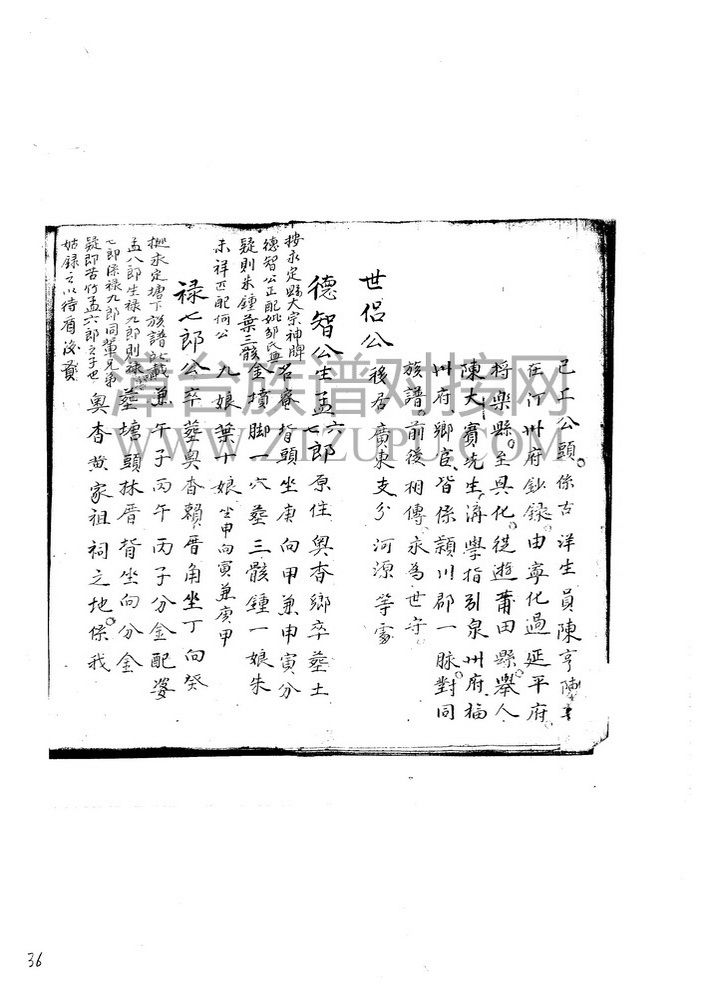 已工公頭係古洋生員陳亨陳
在汀州府鈔録由寧化過延平府
將樂縣至興化從遊莆田縣舉人
陳大賓先生講學指引泉州府福
州府鄉宦皆係潁川郡一脉對同
族譜前後相傳永為世守
世侶公後居廣東支分河源等處
德智公生孟六七郎原住奧杳鄉卒塟土
按永定縣大宗神牌
德智公正配姚鄒氏
疑則朱鍾葉三骸
未祥匹配何公
名庵背頭坐庚向甲兼申寅分
金墳脚一穴塟三骸鍾一娘朱
九娘葉十娘坐申向寅兼庚甲
禄七郎公卒塟奥杳賴厝角坐丁向癸
據永定塘下族譜所載
孟八郎生禄九郎則禄
七郎係禄九郎同輩兄弟
疑即苦竹孟六郎之子也
姑録之以待盾後賢
兼午子丙午丙子分金配婆
塟塘頭林厝背坐向分金
奥杳黄家祖祠之地係我
36
漳台族谱对接网
WWW.ZIZUPU.COM